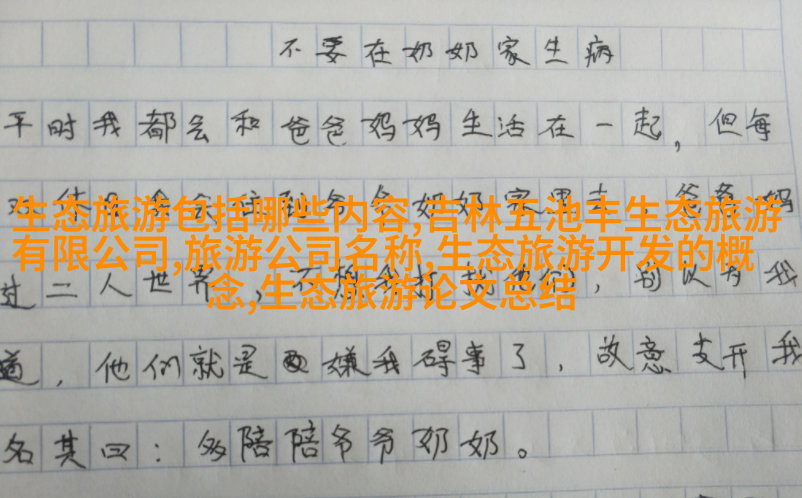 不要在奶奶家生病
平时我都会和爸爸妈妈生活在一起，但每
生态旅游包括哪些内容,吉林五池丰生态旅游
有限公司,旅游公司名称,生态旅游开发的概
念,生态旅游论文总结
过二人世界，不想我打扰他们，别以为我
道，他们就是嫌我碍事了，故意支开我
名其曰：多陪陪爷爷奶奶。